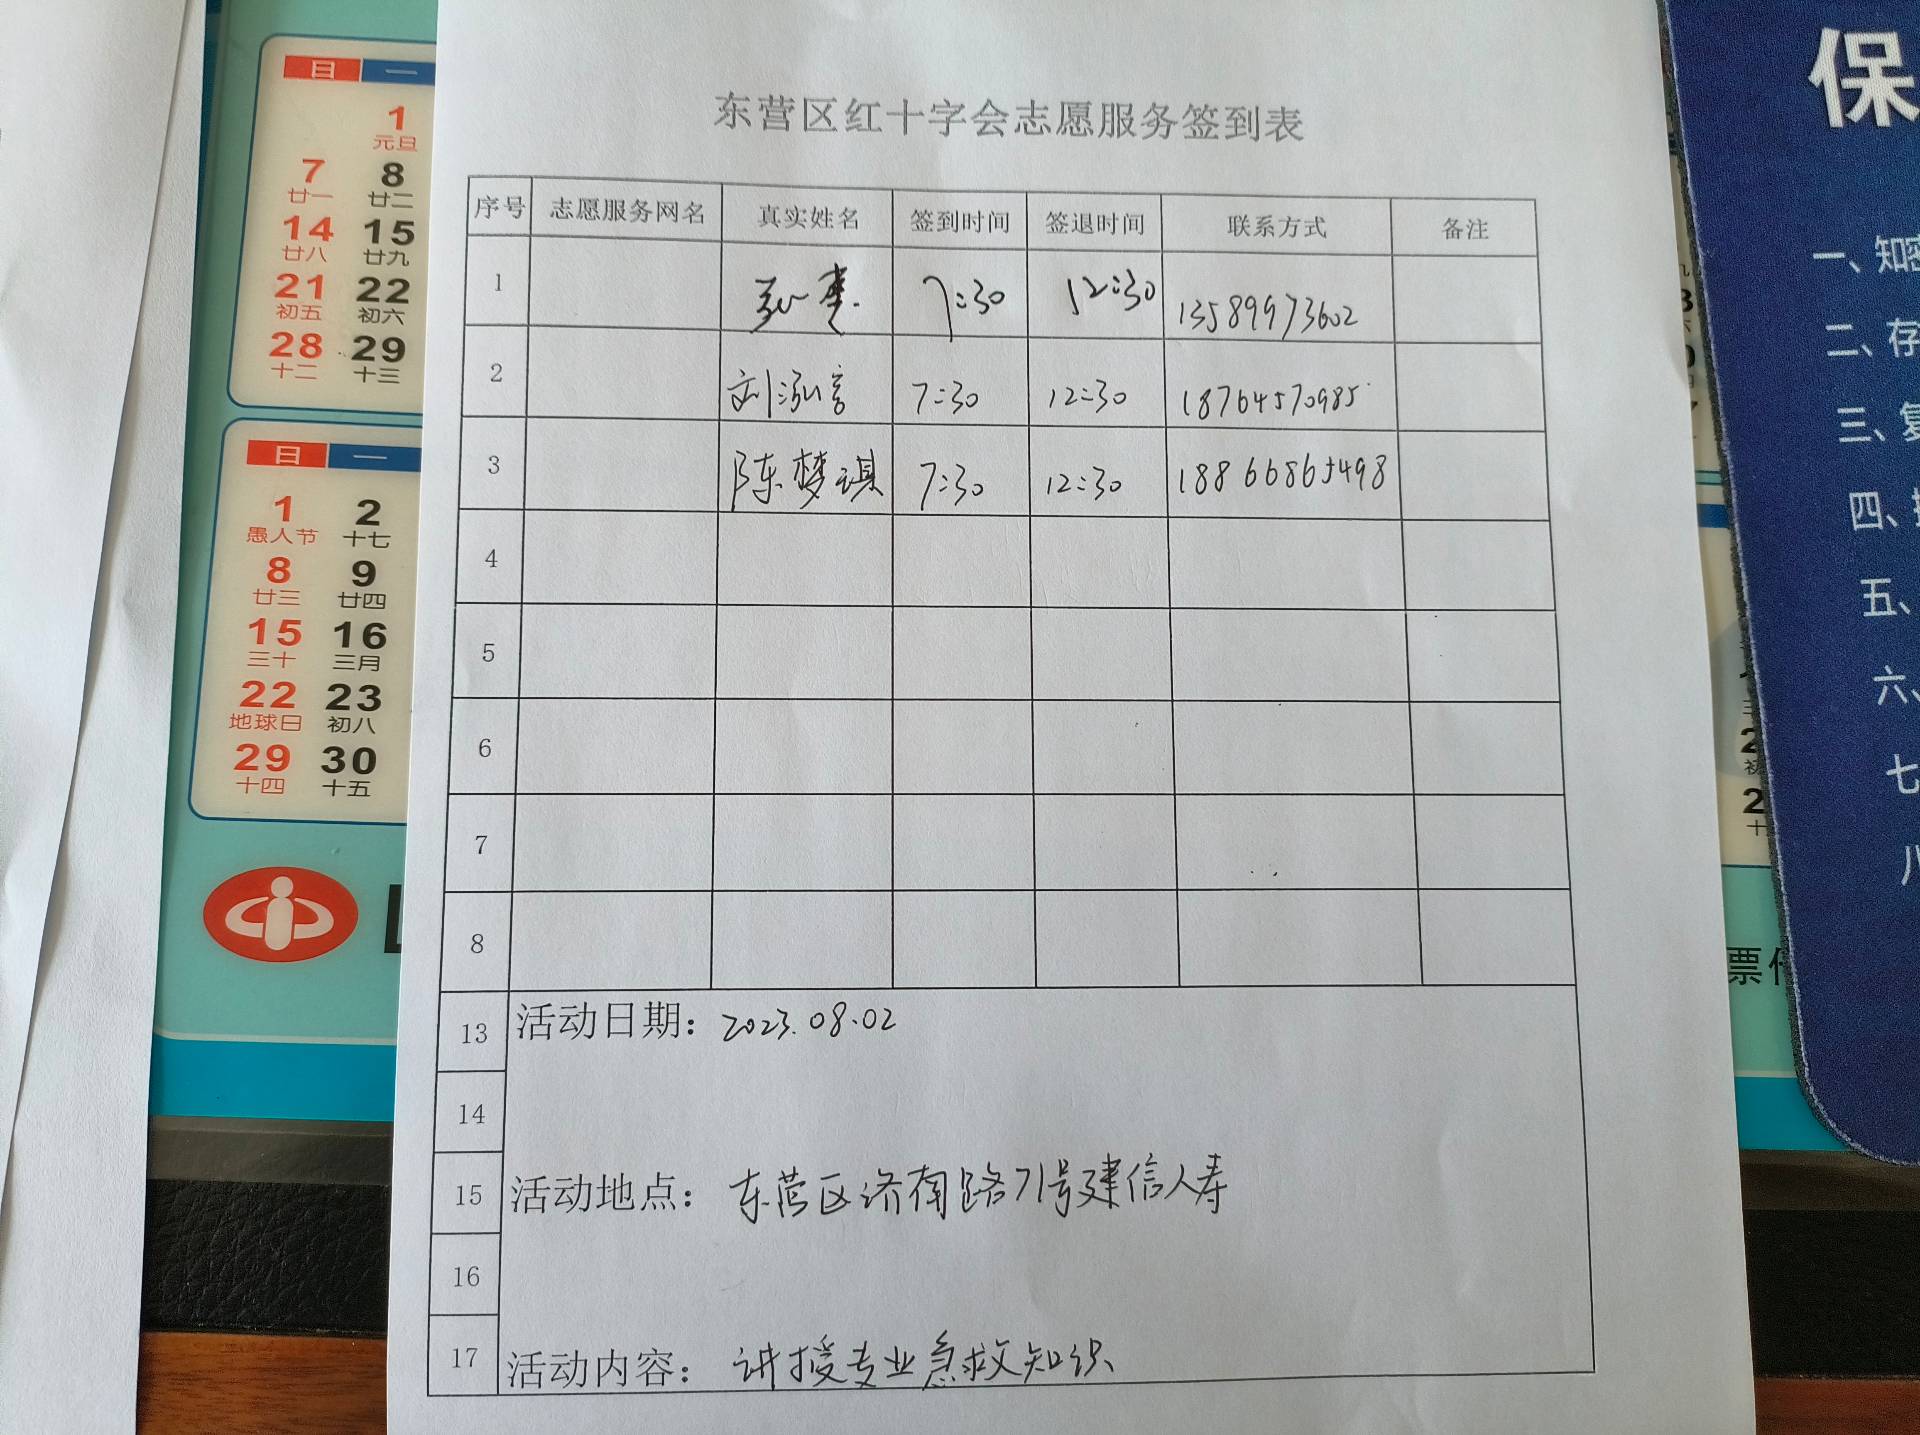 东营区红十字会志愿服务签到表
序号 志愿服务网名 真实姓名 签到时间 签退时间 联系方式 备注
1 7:30 12:30 13589973602
2 刘泓言 7:30 12:30 18764570985
3 陈梦琪 7:30 12:30 18866865498
4
5
6
7
8
13 活动日期：2023.08.02
14
15 活动地点：东营区济南路71号建信人寿
16
17 活动内容：讲授专业急救知识
日 一
1
元旦
7 8
廿一 廿二
14 15
廿八 廿九
21 22
初五 初六
28 29
十二 十三
日 一
1 2
愚人节 十七
8 9
廿三 廿四
15 16
三十 三月
22 23
地球日 初八
29 30
十四 十五
保
一、知密
二、存
三、复
四、
五、
六、
七
八
票